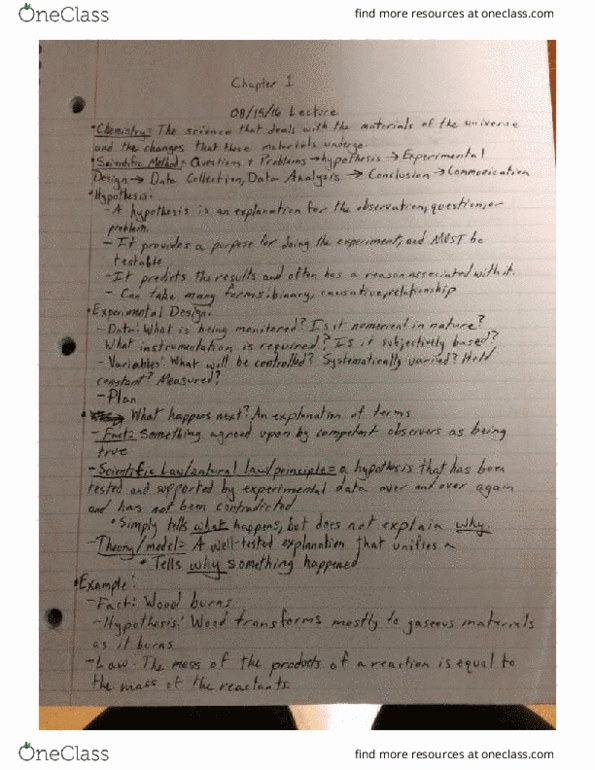 OneClass
find more resources at oneclass.com
Chapter 1
08/15/16 Lecture
•Chemistry= The science that deals with the materials of the universe
and the changes that these materials undergo.
•Scientific Method= Questions + Problems→hypothesis → Experimental
Design→ Data Collection, Data Analysis → Conclusion →Commonication
•Hypothesis:
-A hypothesis is an explanation for the observation, question, or
problem.
- It provides a purpose for doing the experiment, and MOST be
testable
-It predicts the results and often has a reason associated with it.
- Can take many forms: binary, causative, relationship
•Experimental Design:
-Data: What is being monitored? Is it numerical in nature?
What instrumentation is required? Is it subjectively based?
-Variables: What will be controlled? Systematically varied? Held
constant? Measured?
-Plan
• What happens next? An explanation of terms
-Fact= Something agreed upon by competent observers as being
true
-Scientific Law/natural law/principle= a hypothesis that has been
tested and supported by experimental data over and over again
and has not been contradicted
•Simply tells what happens, but does not explain why.
-Theory/model= A well-tested explanation that unifies a
• Tells why something happened
•Example:
-Fact: Wood burns
-Hypothesis: Wood transforms mostly to gaseous materials
as it burns
-Law: The mass of the products of a reaction is equal to
the mass of the reactants.
OneClass
find more resources at oneclass.com